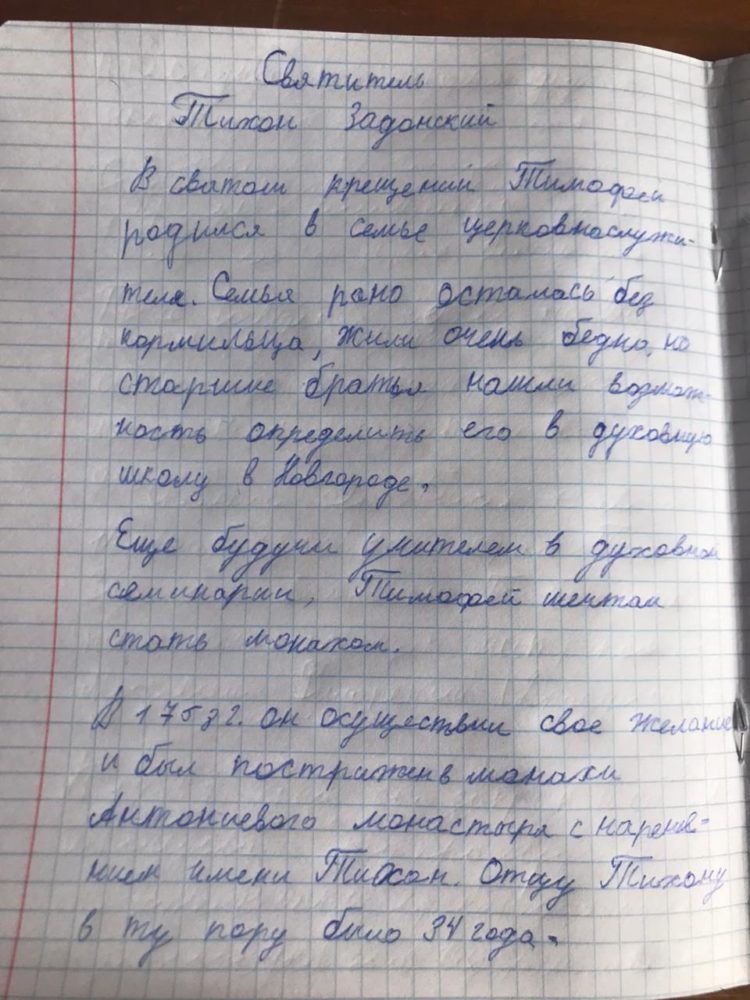 Святитель
Тихон Задонский
В святом крещении Тимофей
родился в семье церковнослужи-
теля. Семья рано осталась без
кормильца, жили очень бедно, но
старшие братья нашли возмож-
ность определить его в духовную
школу в Новгороде.
Еще будучи учителем в духовной
семинарии, Тимофей мечтал
стать монахом.
В 1753г. он осуществил свое желание
и был пострижен в монахи
Антониевого монастыря с нарече-
нием имени Тихон. Отцу Тихону
в ту пору было 34 года.